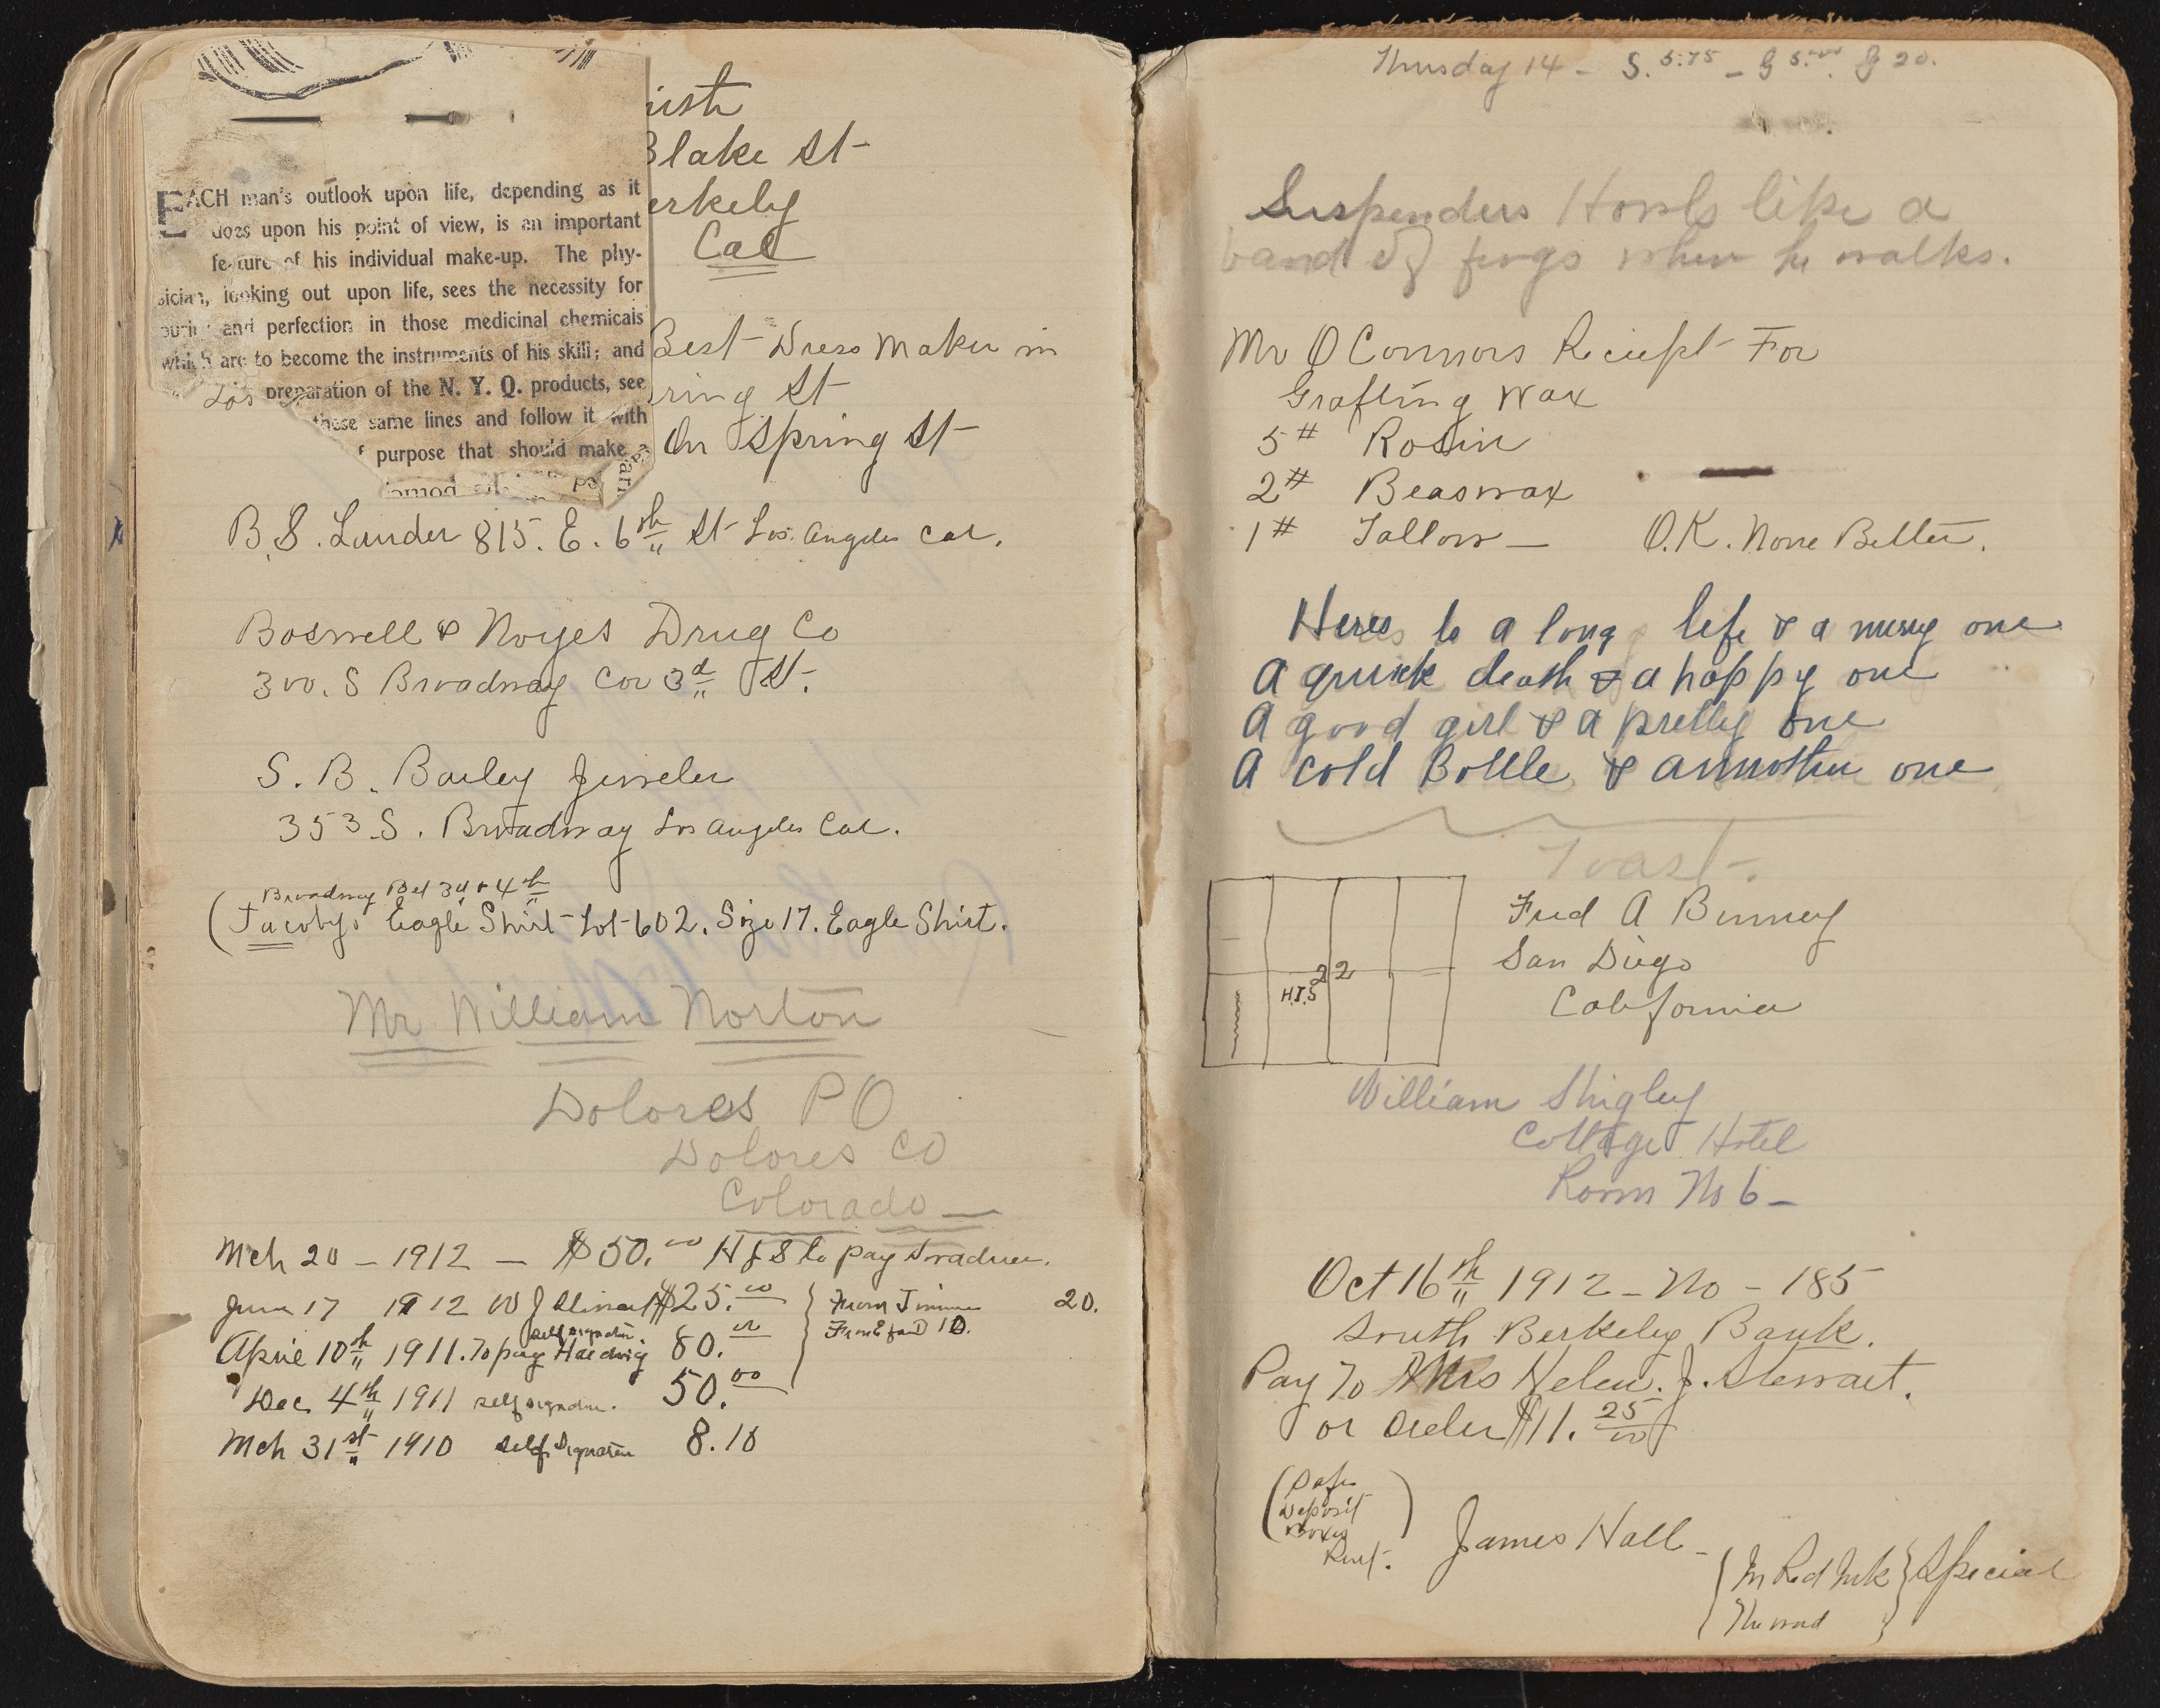 EACH man's outlook upon life, depending as it
does upon his point of view, is an important
feature of his individual make-up. The phy-
sician, looking out upon life, sees the necessity for
purity and perfection in those medicinal chemicals
which are to become the instruments of his skill; and
preparation of the N. Y. Q. products, see
these same lines and follow it with
f purpose that should make a
Blake St
erkely
Cal
Best Dress Maker in
Los
ring St
On Spring St
B. S. Lauder 815. E. 6th St Los Angeles Cal.
Boswell & Noyes Drug Co
300. S Broadway Cor 3d St.
S. B. Bailey Jeweler
353 S. Broadway Los Angeles Cal.
Broadway Bet 3d & 4th
(Jacobys Eagle Shirt Lot 602. Size 17. Eagle Shirt.
Mr William Norton
Dolores P O
Dolores CO
Colorado
Mch 20 - 1912 - $50.00 H J S to pay
June 17 1912 W J Stewart $25.00 } From Jimmie 20.
April 10th 1911. To pay Haedwig self signatu. 80.00 10.
Dec 4th 1911 self signatu. 50.00
Mch 31st 1910 self Signature 8.10
Thursday 14 - S. 5.75 - G 5.00. G 20.
Suspenders Howls like a
band of frogs when he walks.
Mr O Connors Reciept For
Grafting Wax
5# Rosin
2# Beaswax
1# Tallow - O.K. None Better.
Heres to a long life & a merry one
A quick death & a happy one
A good girl & a pretty one
A cold Bottle & annother one
Toast.
22
H.J.S
Fred A Binney
San Diego
California
William Shigley
Cottage Hotel
Room No 6 -
Oct 16th 1912 - No - 185
South Berkeley Bank.
Pay To Mrs Helen. J. Stewart.
or order $11. 25/00
(Safe
Deposit
Boxes)
Rent.
James Hall -
{In Red Ink} Special
The word